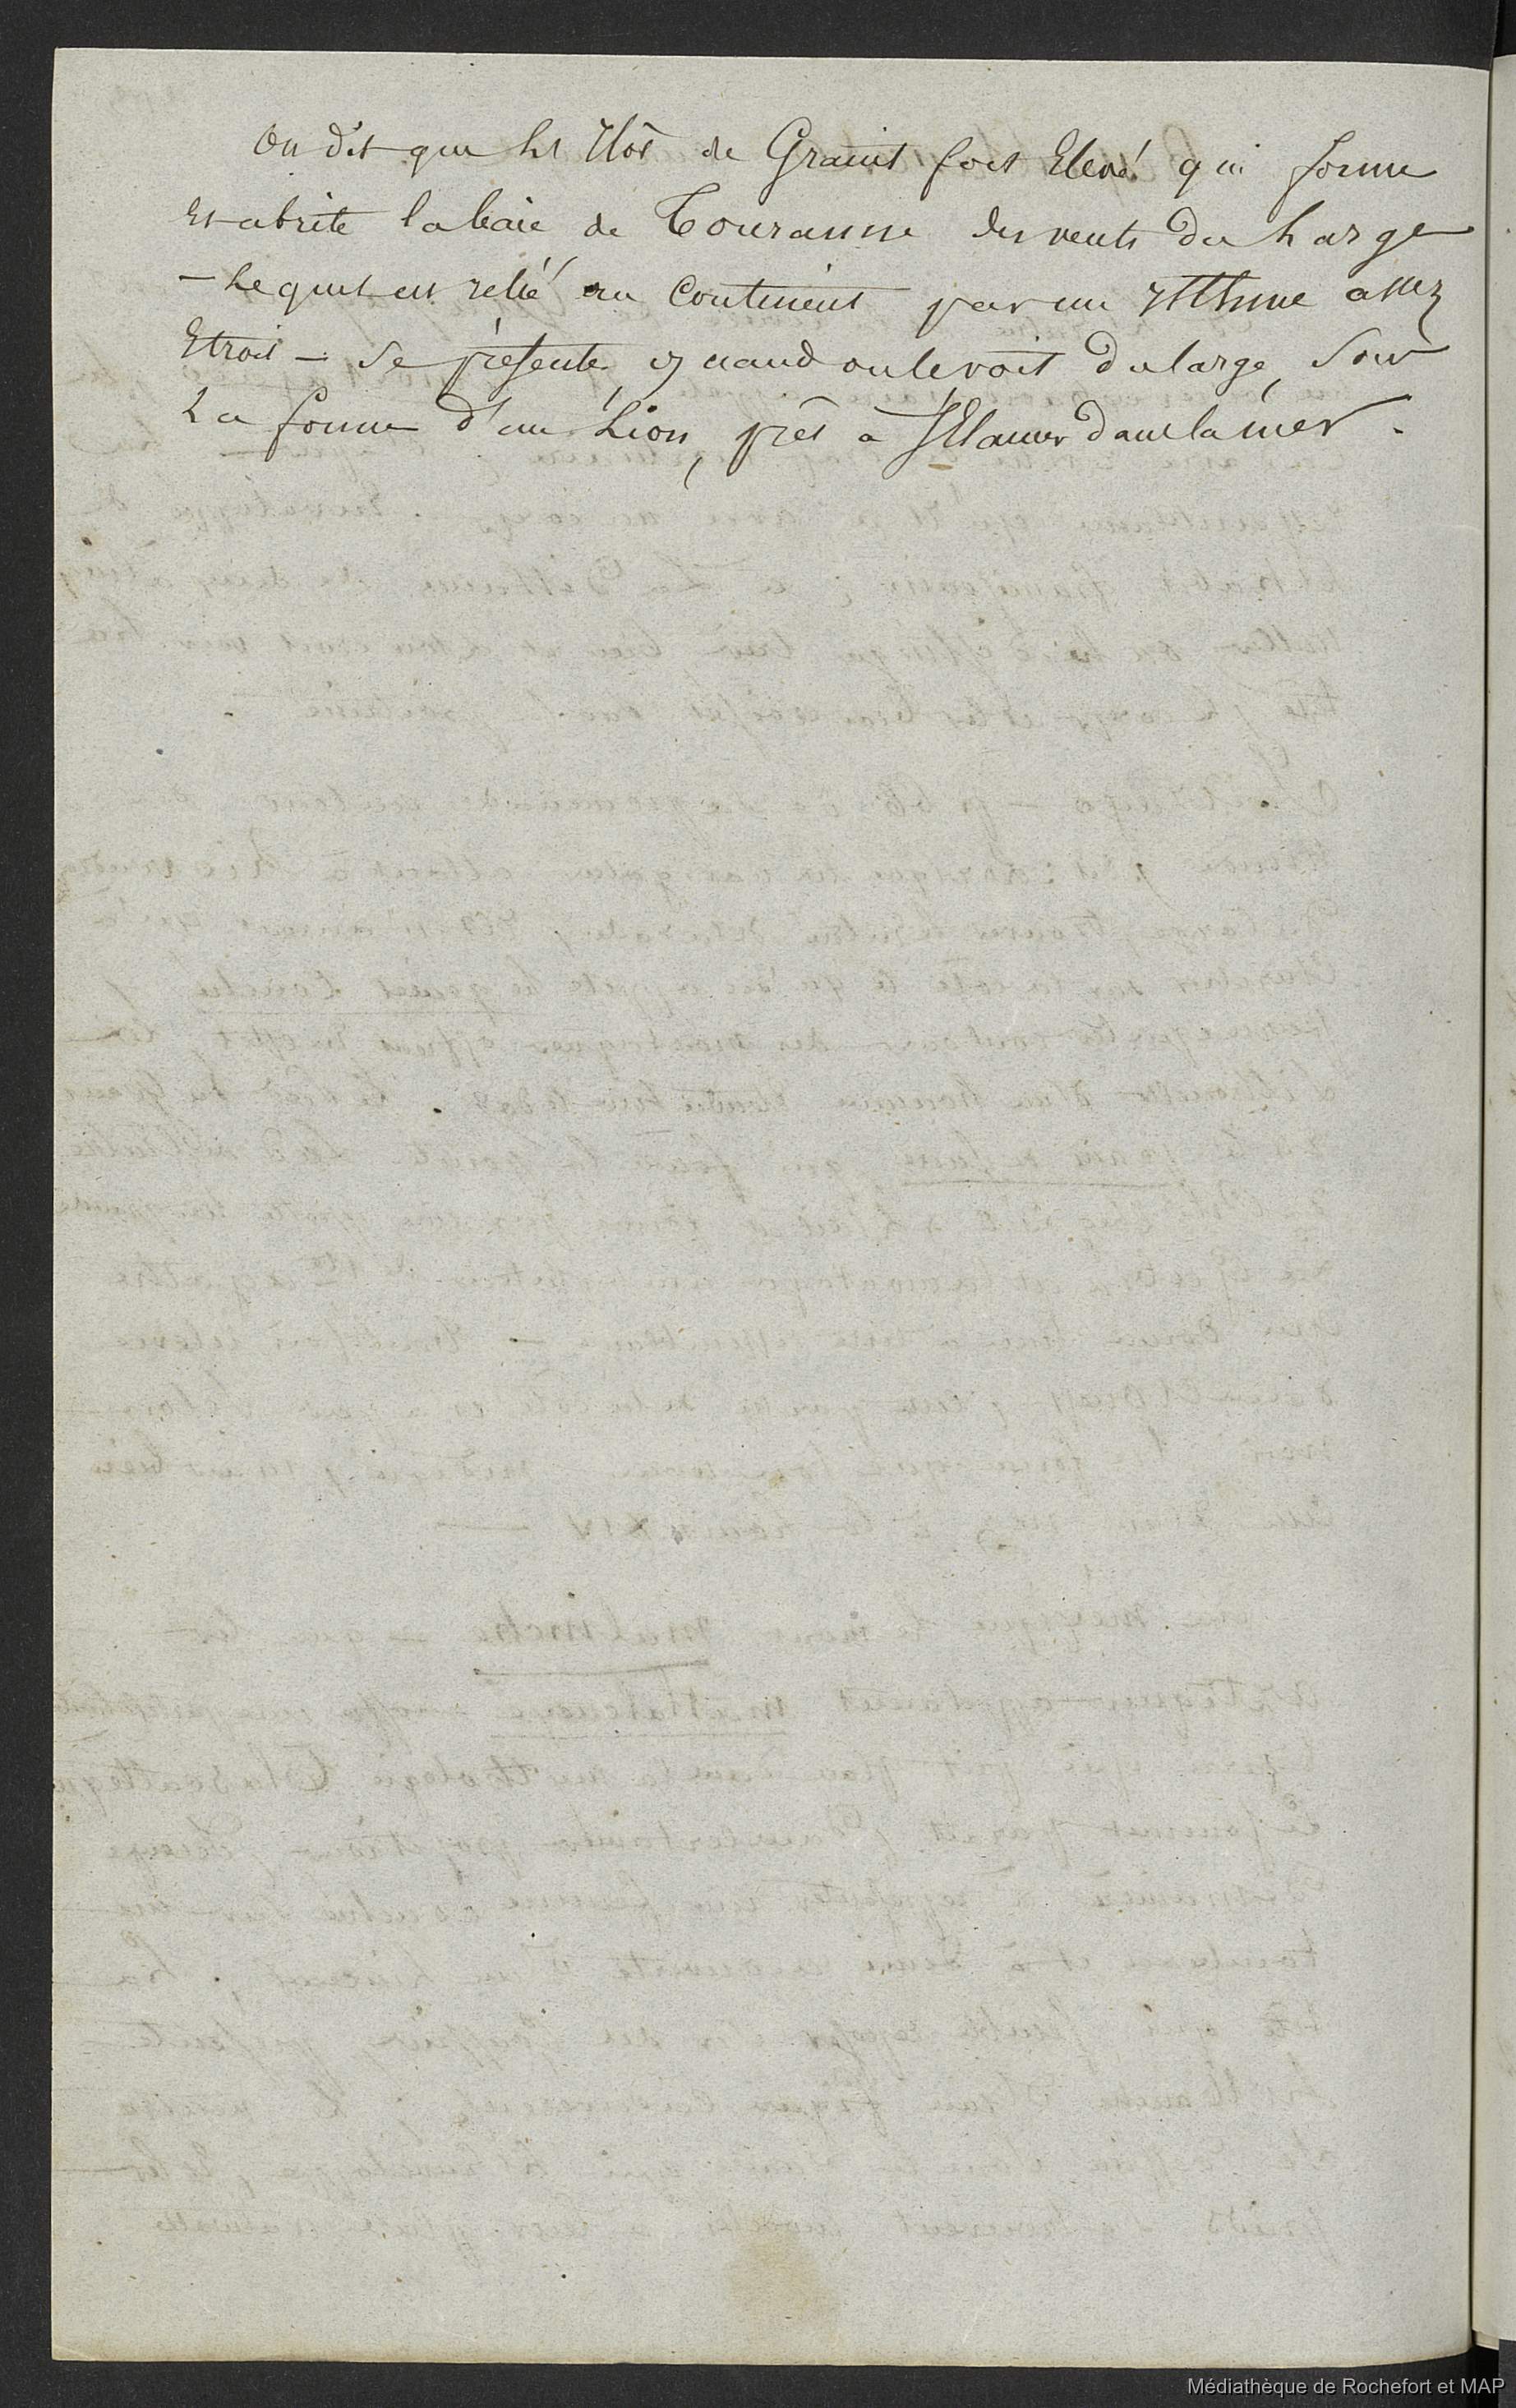 On dit que les Ilôt de Granit fort Elevé qui forme
et abrite la baie de Touranne des vents du Large
— Lequel est relié au Continent par un Isthme assez
Etroit — se présente, quand on le voit du large, sous
La forme d'un Lion, prêt à s'Elancer dans la mer.
Médiathèque de Rochefort et MAP